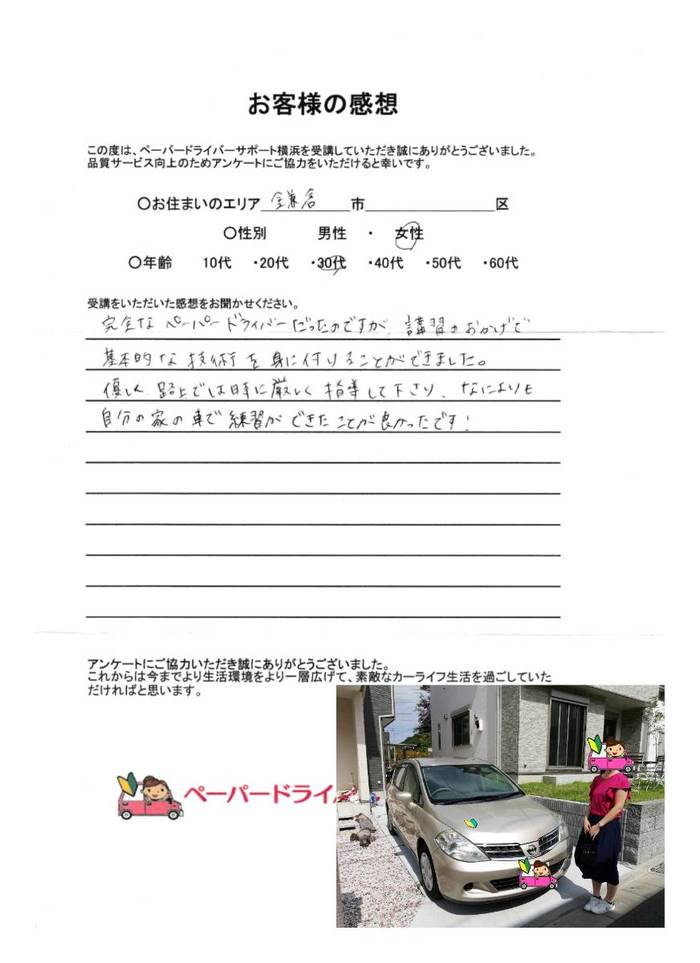 お客様の感想
この度は、ペーパードライバーサポート横浜を受講していただき誠にありがとうございました。
品質サービス向上のためアンケートにご協力をいただけると幸いです。
〇お住まいのエリア 鎌倉 市 区
〇性別 男性 ・ 女性
〇年齢 10代 ・20代 ・30代 ・40代 ・50代 ・60代
受講をいただいた感想をお聞かせください。
完全なペーパードライバーだったのですが、講習のおかげで
基本的な技術を身に付けることができました。
優しく、路上では時に厳しく指導して下さり、なによりも
自分の家の車で練習ができたことが良かったです!
アンケートにご協力いただき誠にありがとうございました。
これからは今までより生活環境をより一層広げて、素敵なカーライフ生活を過ごしていた
だければと思います。
ペーパードライ